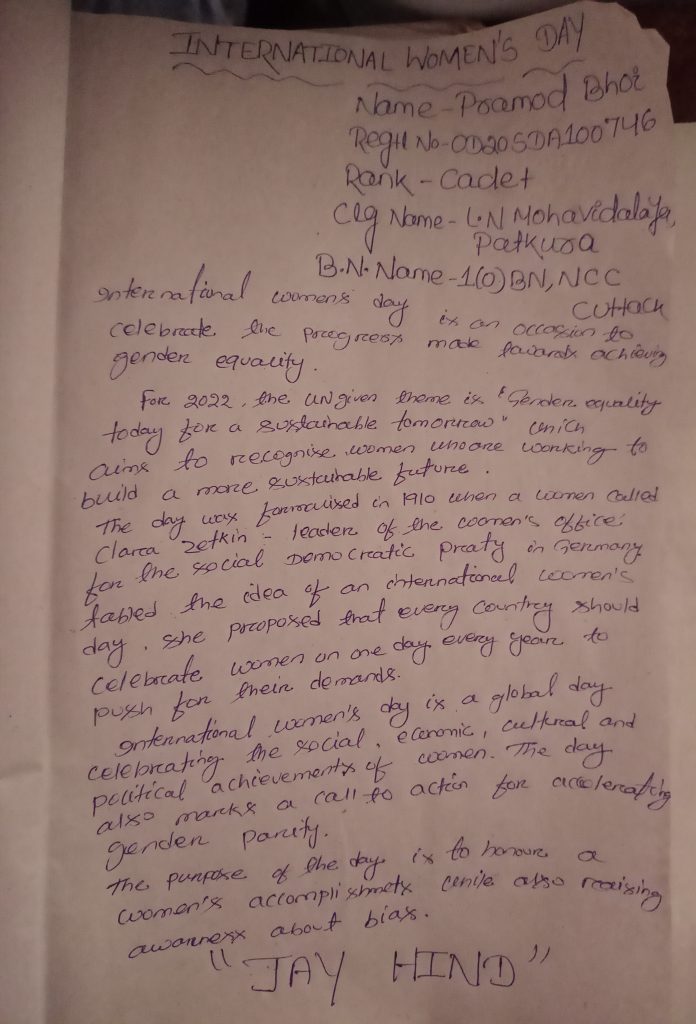 INTERNATIONAL WOMEN'S DAY
Name - Pramod Bhoi
Regtl No - OD20SDA100746
Rank - Cadet
Clg Name - L.N Mohavidalaya,
Patkura
B.N. Name - 1(0) BN, NCC
CUttack
International women's day is an occasion to
celebrate the progress made towards achieving
gender equality.
For 2022, the UN given theme is "Gender equality
today for a sustainable tomorrow" which
aims to recognise women who are working to
build a more sustainable future.
The day was formalised in 1910 when a women called
Clara Zetkin - leader of the women's office
for the social Democratic praty in Germany
tabled the idea of an international women's
day. she proposed that every country should
celebrate women on one day every year to
push for their demands.
International women's day is a global day
celebrating the social, economic, cultural and
political achievements of women. The day
also marks a call to action for accelerating
gender parity.
The purpose of the day is to honour a
women's accomplishmets while also raising
awarness about bias.
"JAY HIND"